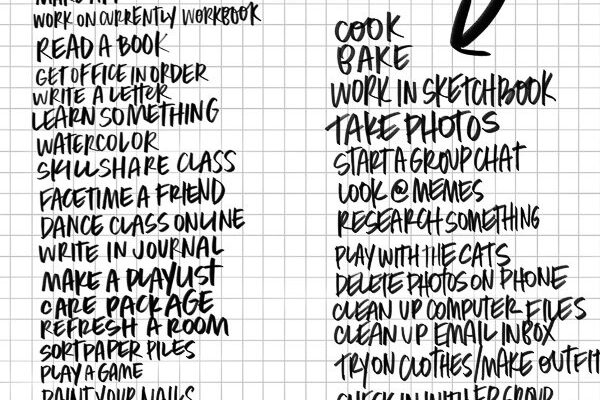 WORK ON CURRENTLY WORKBOOK
READ A BOOK
GET OFFICE IN ORDER
WRITE A LETTER
LEARN SOMETHING
WATERCOLOR
SKILLSHARE CLASS
FACETIME A FRIEND
DANCE CLASS ONLINE
WRITE IN JOURNAL
MAKE A PLAYLIST
CARE PACKAGE
REFRESH A ROOM
SORT PAPER PILES
PLAY A GAME
PAINT YOUR NAILS
COOK
BAKE
WORK IN SKETCHBOOK
TAKE PHOTOS
START A GROUP CHAT
LOOK @ MEMES
RESEARCH SOMETHING
PLAY WITH THE CATS
DELETE PHOTOS ON PHONE
CLEAN UP COMPUTER FILES
CLEAN UP EMAIL INBOX
TRY ON CLOTHES/MAKE OUTFIT
CHECK IN WITH GROUP